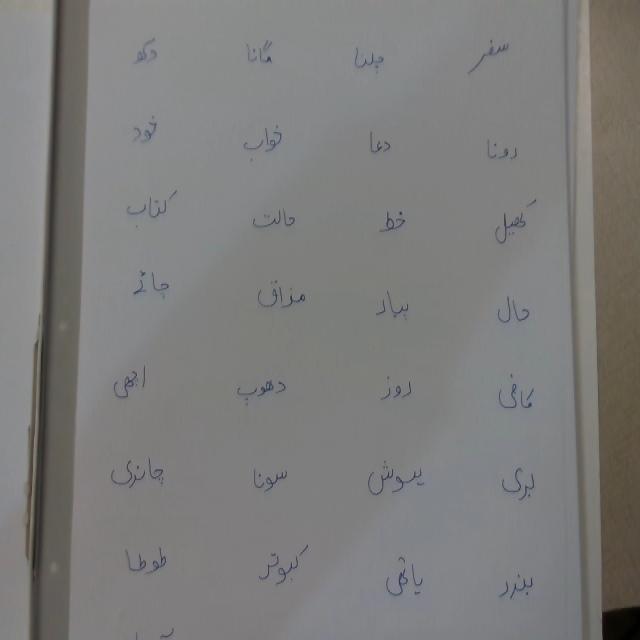 سفر چلنا گانا دکھ
رونا دعا خواب خود
کھیل خط حالت کتاب
حال پیار مذاق چائے
کافی روز دھوپ ابھی
بری سونا چاندی
بندر ہاتھی کبوتر طوطا